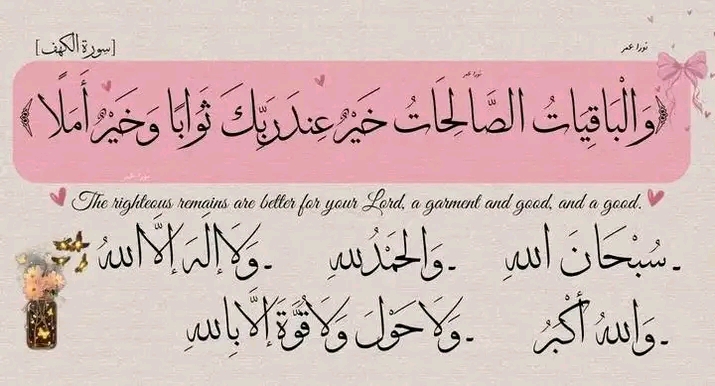 [سورة الكهف]
نورا عمر
﴿وَالْبَاقِيَاتُ الصَّالِحَاتُ خَيْرٌ عِندَ رَبِّكَ ثَوَابًا وَخَيْرٌ أَمَلًا﴾
نورا عمر
نورا عمر
The righteous remains are better for your Lord, a garment and good, and a good.
ـ سُبْحَانَ الله ـ وَالحَمْدُلله ـ وَلَا إِلَهَ إِلَّا اللهُ
ـ وَاللهُ أَكْبَرُ ـ وَلَا حَوْلَ وَلَا قُوَّةَ إِلَّا بِاللهِ